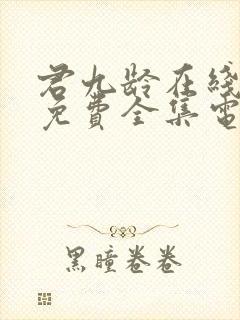 君九龄在线
免費全集電
黑瞳卷卷